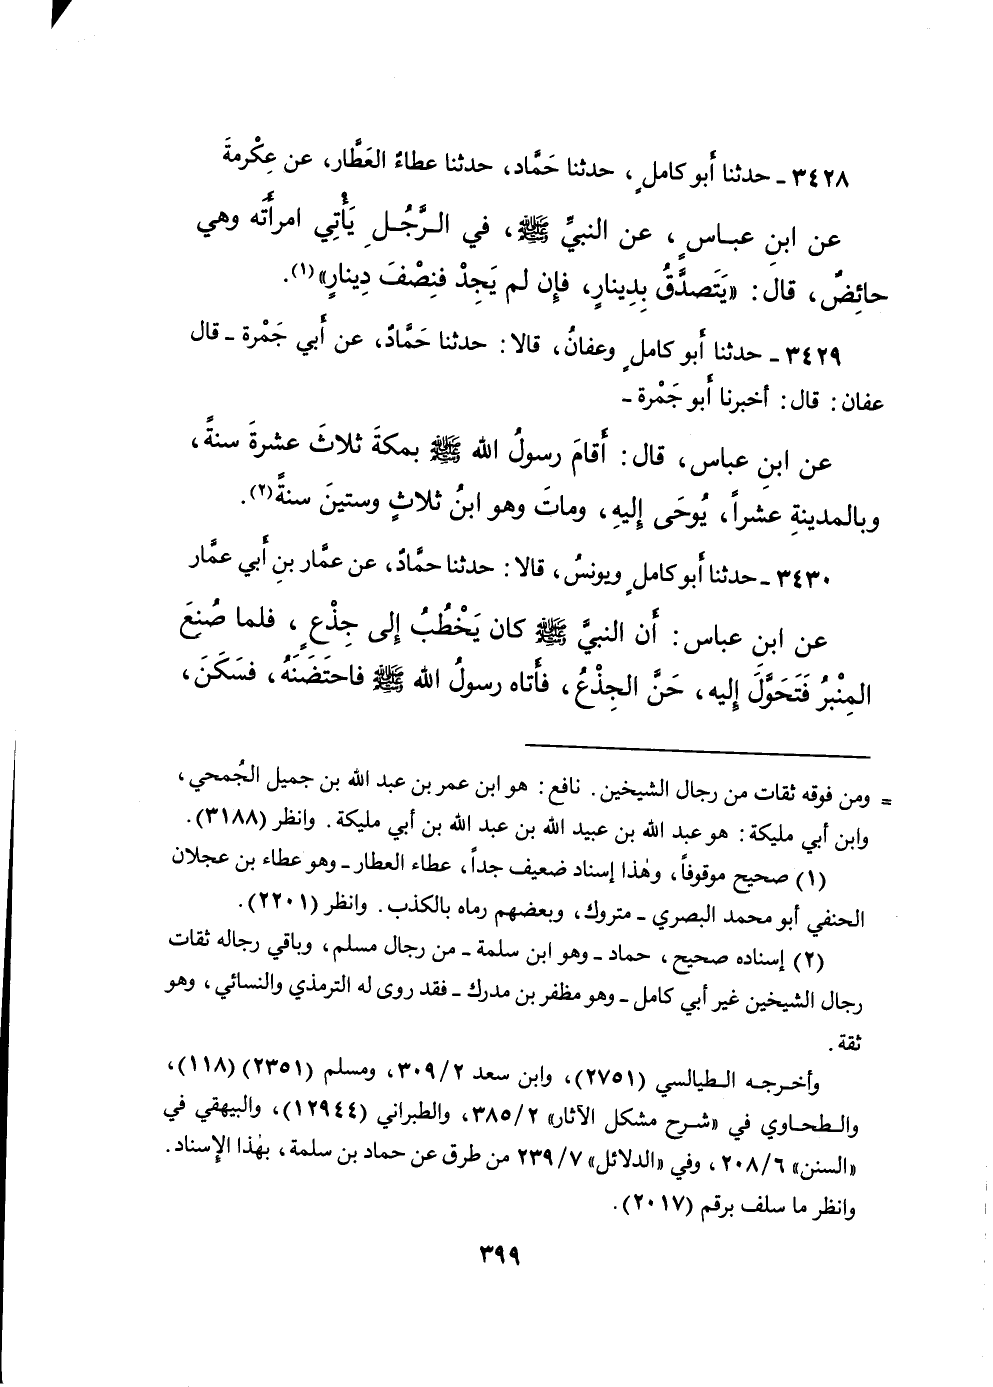 ٣٤٢٨ ـ حدثنا أَبو كاملٍ، حدثنا حَمَّاد، حدثنا عطاءٌ العَطَّار، عن عِكْرمةَ
عن ابنِ عبـاسٍ، عن النبيِّ ﷺ، في الـرَّجُـلِ يَأْتِي امرأَتَه وهي
حائِضٌ، قال: «يَتَصدَّقُ بِدِينارٍ، فإِن لم يَجِدْ فنِصْفَ دِينارٍ»(١).
٣٤٢٩ ـ حدثنا أَبو كاملٍ وعفانُ، قالا: حدثنا حَمَّادٌ، عن أَبي جَمْرة ـ قال
عفان: قال: أخبرنا أَبو جَمْرة ـ
عن ابنِ عباس، قال: أَقامَ رسولُ الله ﷺ بمكةَ ثلاثَ عشرةَ سنةً،
وبالمدينةِ عشراً، يُوحَى إِليهِ، وماتَ وهو ابنُ ثلاثٍ وستينَ سنةً(٢).
٣٤٣٠ ـ حدثنا أَبو كاملٍ ويونسُ، قالا: حدثنا حمَّادٌ، عن عمَّار بنِ أَبي عمَّار
عن ابنِ عباس: أَن النبيَّ ﷺ كان يَخْطُبُ إِلى جِذْعٍ، فلما صُنِعَ
المِنْبرُ فَتَحَوَّلَ إِليه، حَنَّ الجِذْعُ، فأَتاه رسولُ الله ﷺ فاحتَضَنَهُ، فسَكَنَ،
= ومن فوقه ثقات من رجال الشيخين. نافع: هو ابن عمر بن عبد الله بن جميل الجُمحي،
وابن أبي مليكة: هو عبد الله بن عبيد الله بن عبد الله بن أبي مليكة. وانظر (٣١٨٨).
(١) صحيح موقوفاً، وهٰذا إسناد ضعيف جداً، عطاء العطار ـ وهو عطاء بن عجلان
الحنفي أبو محمد البصري ـ متروك، وبعضهم رماه بالكذب. وانظر (٢٢٠١).
(٢) إسناده صحيح، حماد ـ وهو ابن سلمة ـ من رجال مسلم، وباقي رجاله ثقات
رجال الشيخين غير أبي كامل ـ وهو مظفر بن مدرك ـ فقد روى له الترمذي والنسائي، وهو
ثقة.
وأخـرجـه الـطيالسي (٢٧٥١)، وابن سعد ٣٠٩/٢، ومسلم (٢٣٥١) (١١٨)،
والـطحـاوي في «شـرح مشكل الآثار» ٣٨٥/٢، والطبراني (١٢٩٤٤)، والبيهقي في
«السنن» ٢٠٨/٦، وفي «الدلائل» ٢٣٩/٧ من طرق عن حماد بن سلمة، بهٰذا الإسناد.
وانظر ما سلف برقم (٢٠١٧).
٣٩٩